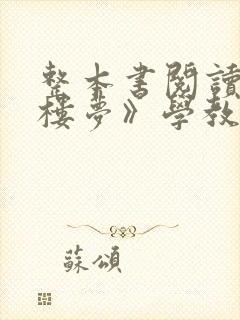 整本書閱讀
樓夢》學教
蘇頌